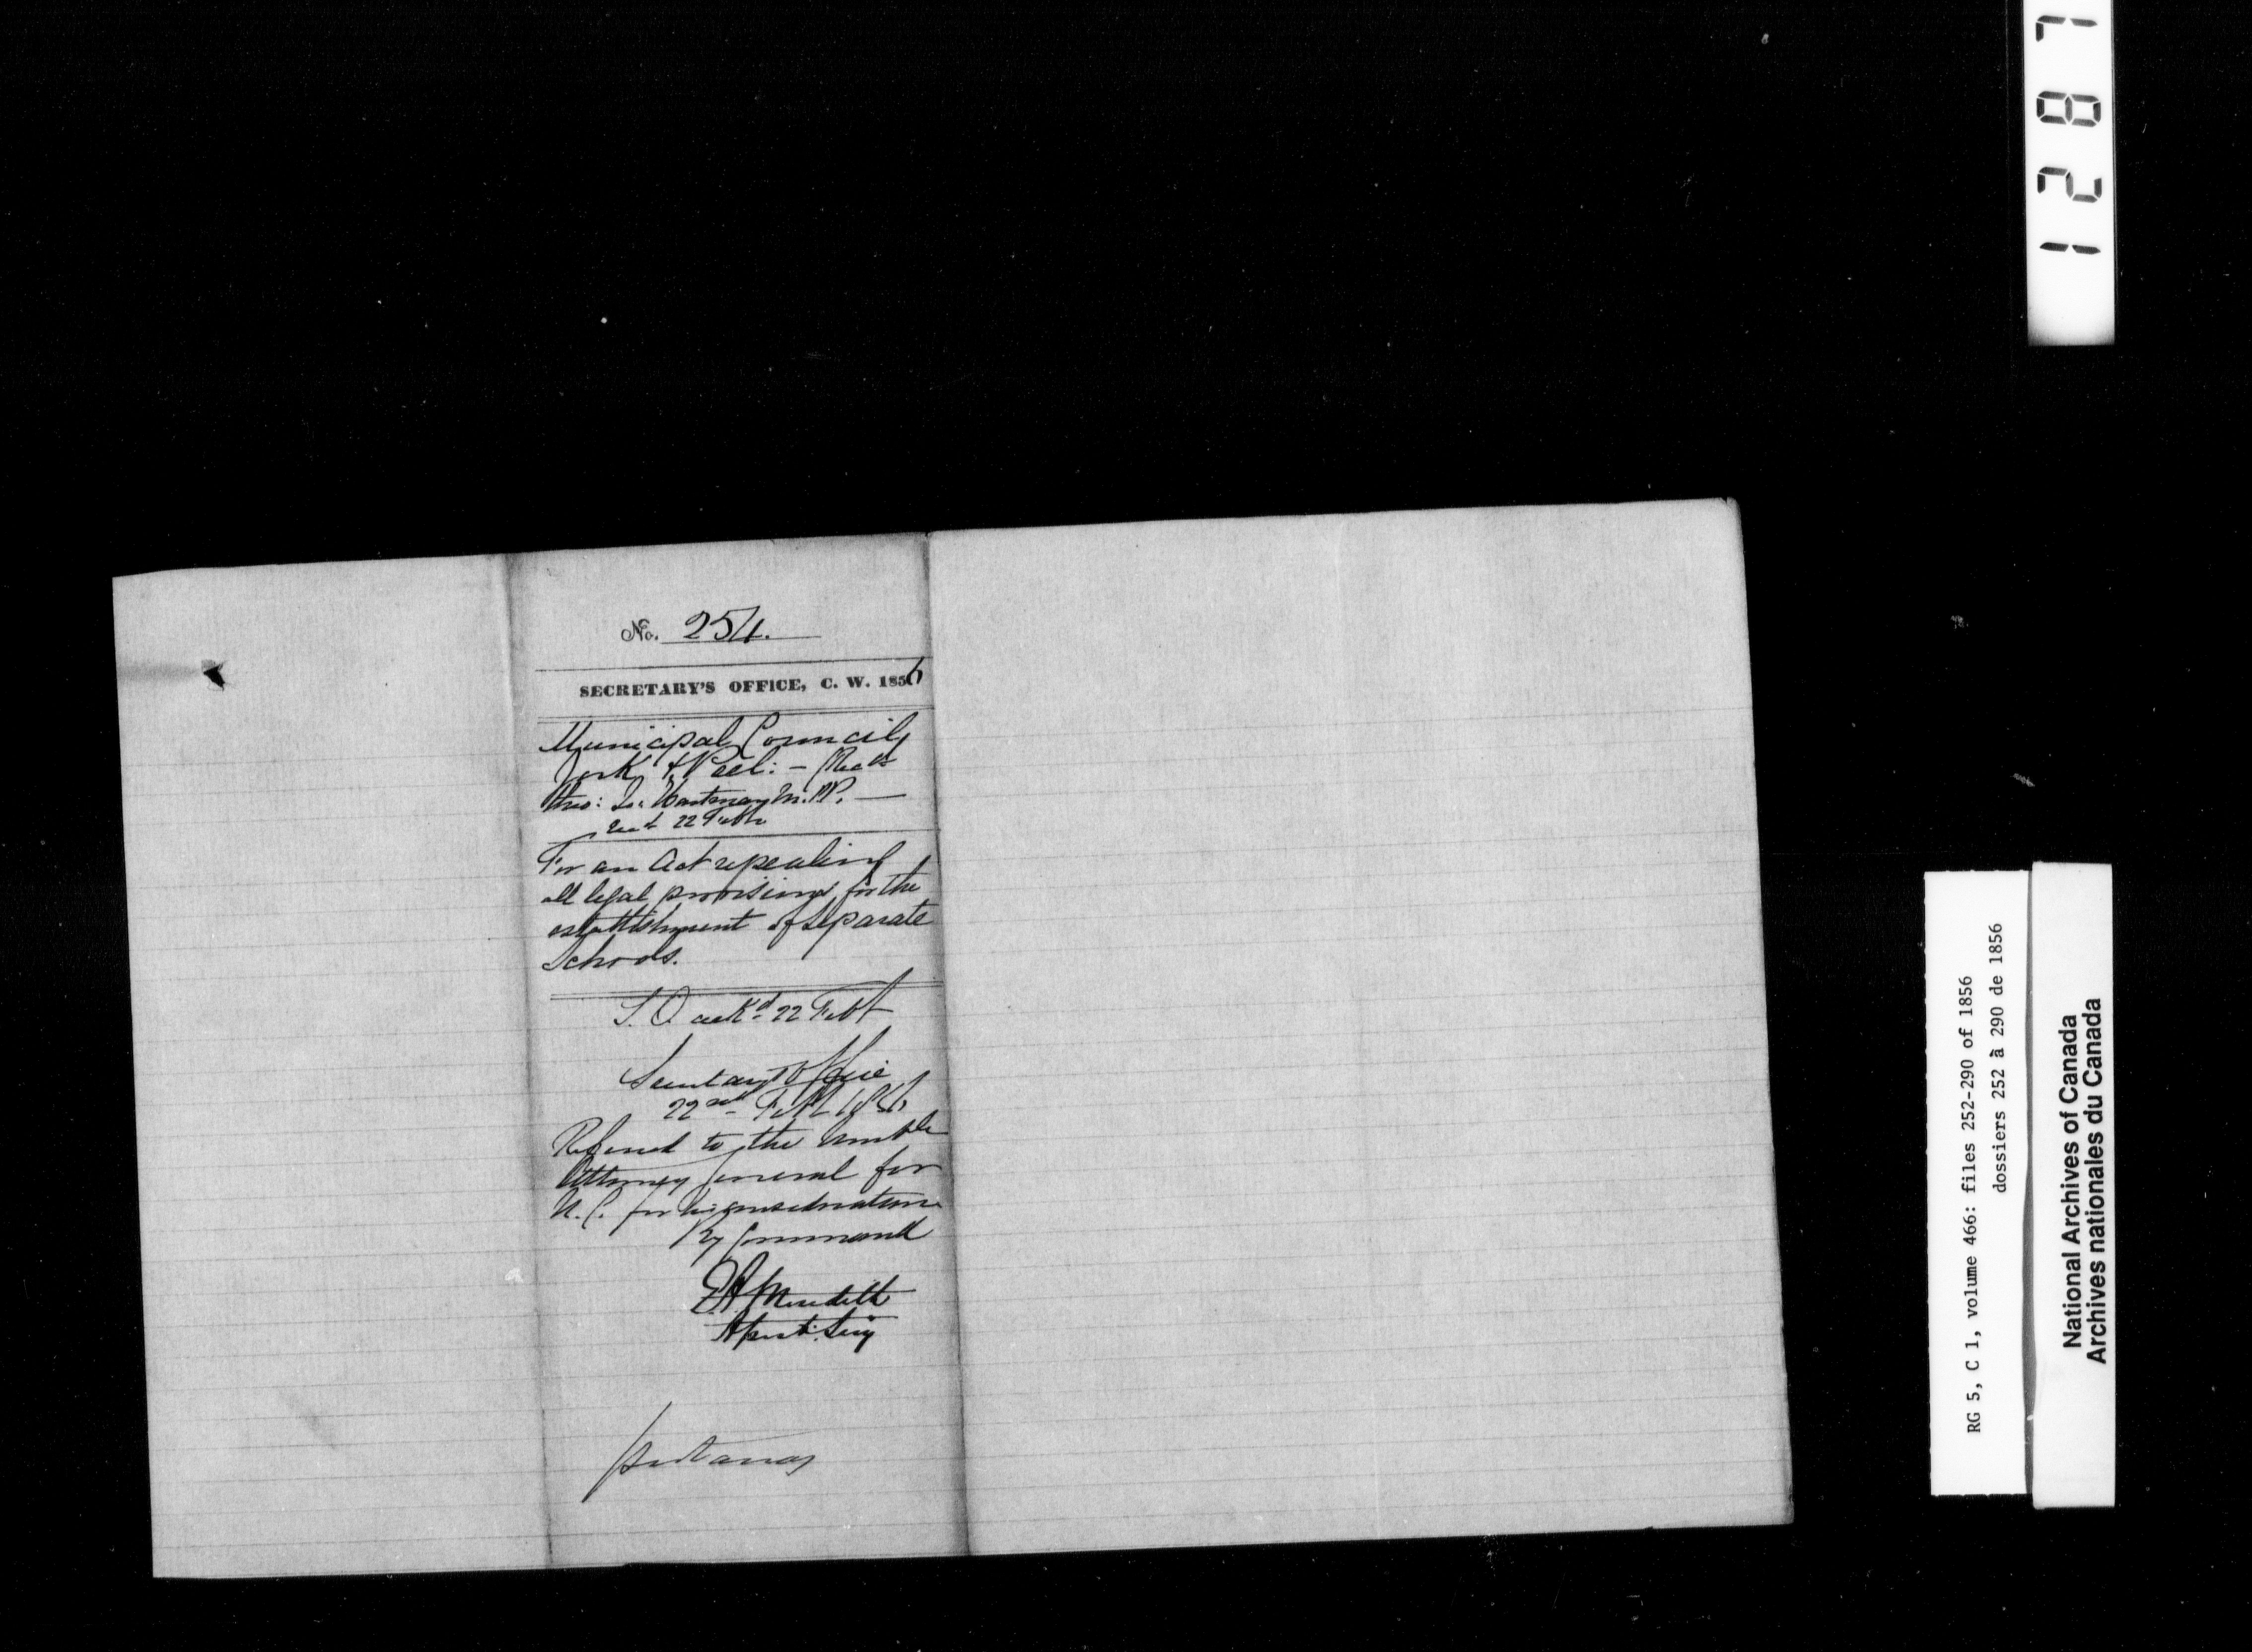 No. 254.
SECRETARY'S OFFICE, C. W. 1856
Municipal Council
York & Peel: —
thro: Jos: Hartman M.P.P. —
22 Feb
For an Act repealing
all legal provisions for the
establishment of Separate
Schools.
ackd 22 Feb
Secretary's Office
22nd Feb 1856
Referred to the Honble
Attorney General for
U. C. for his consideration
By Command
E A Meredith
Asst: Secy
1287
RG 5, C 1, volume 466: files 252-290 of 1856
dossiers 252 à 290 de 1856
National Archives of Canada
Archives nationales du Canada